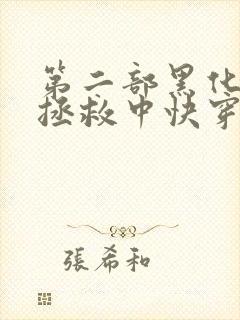 第二部黑化
拯救中快穿
張希和